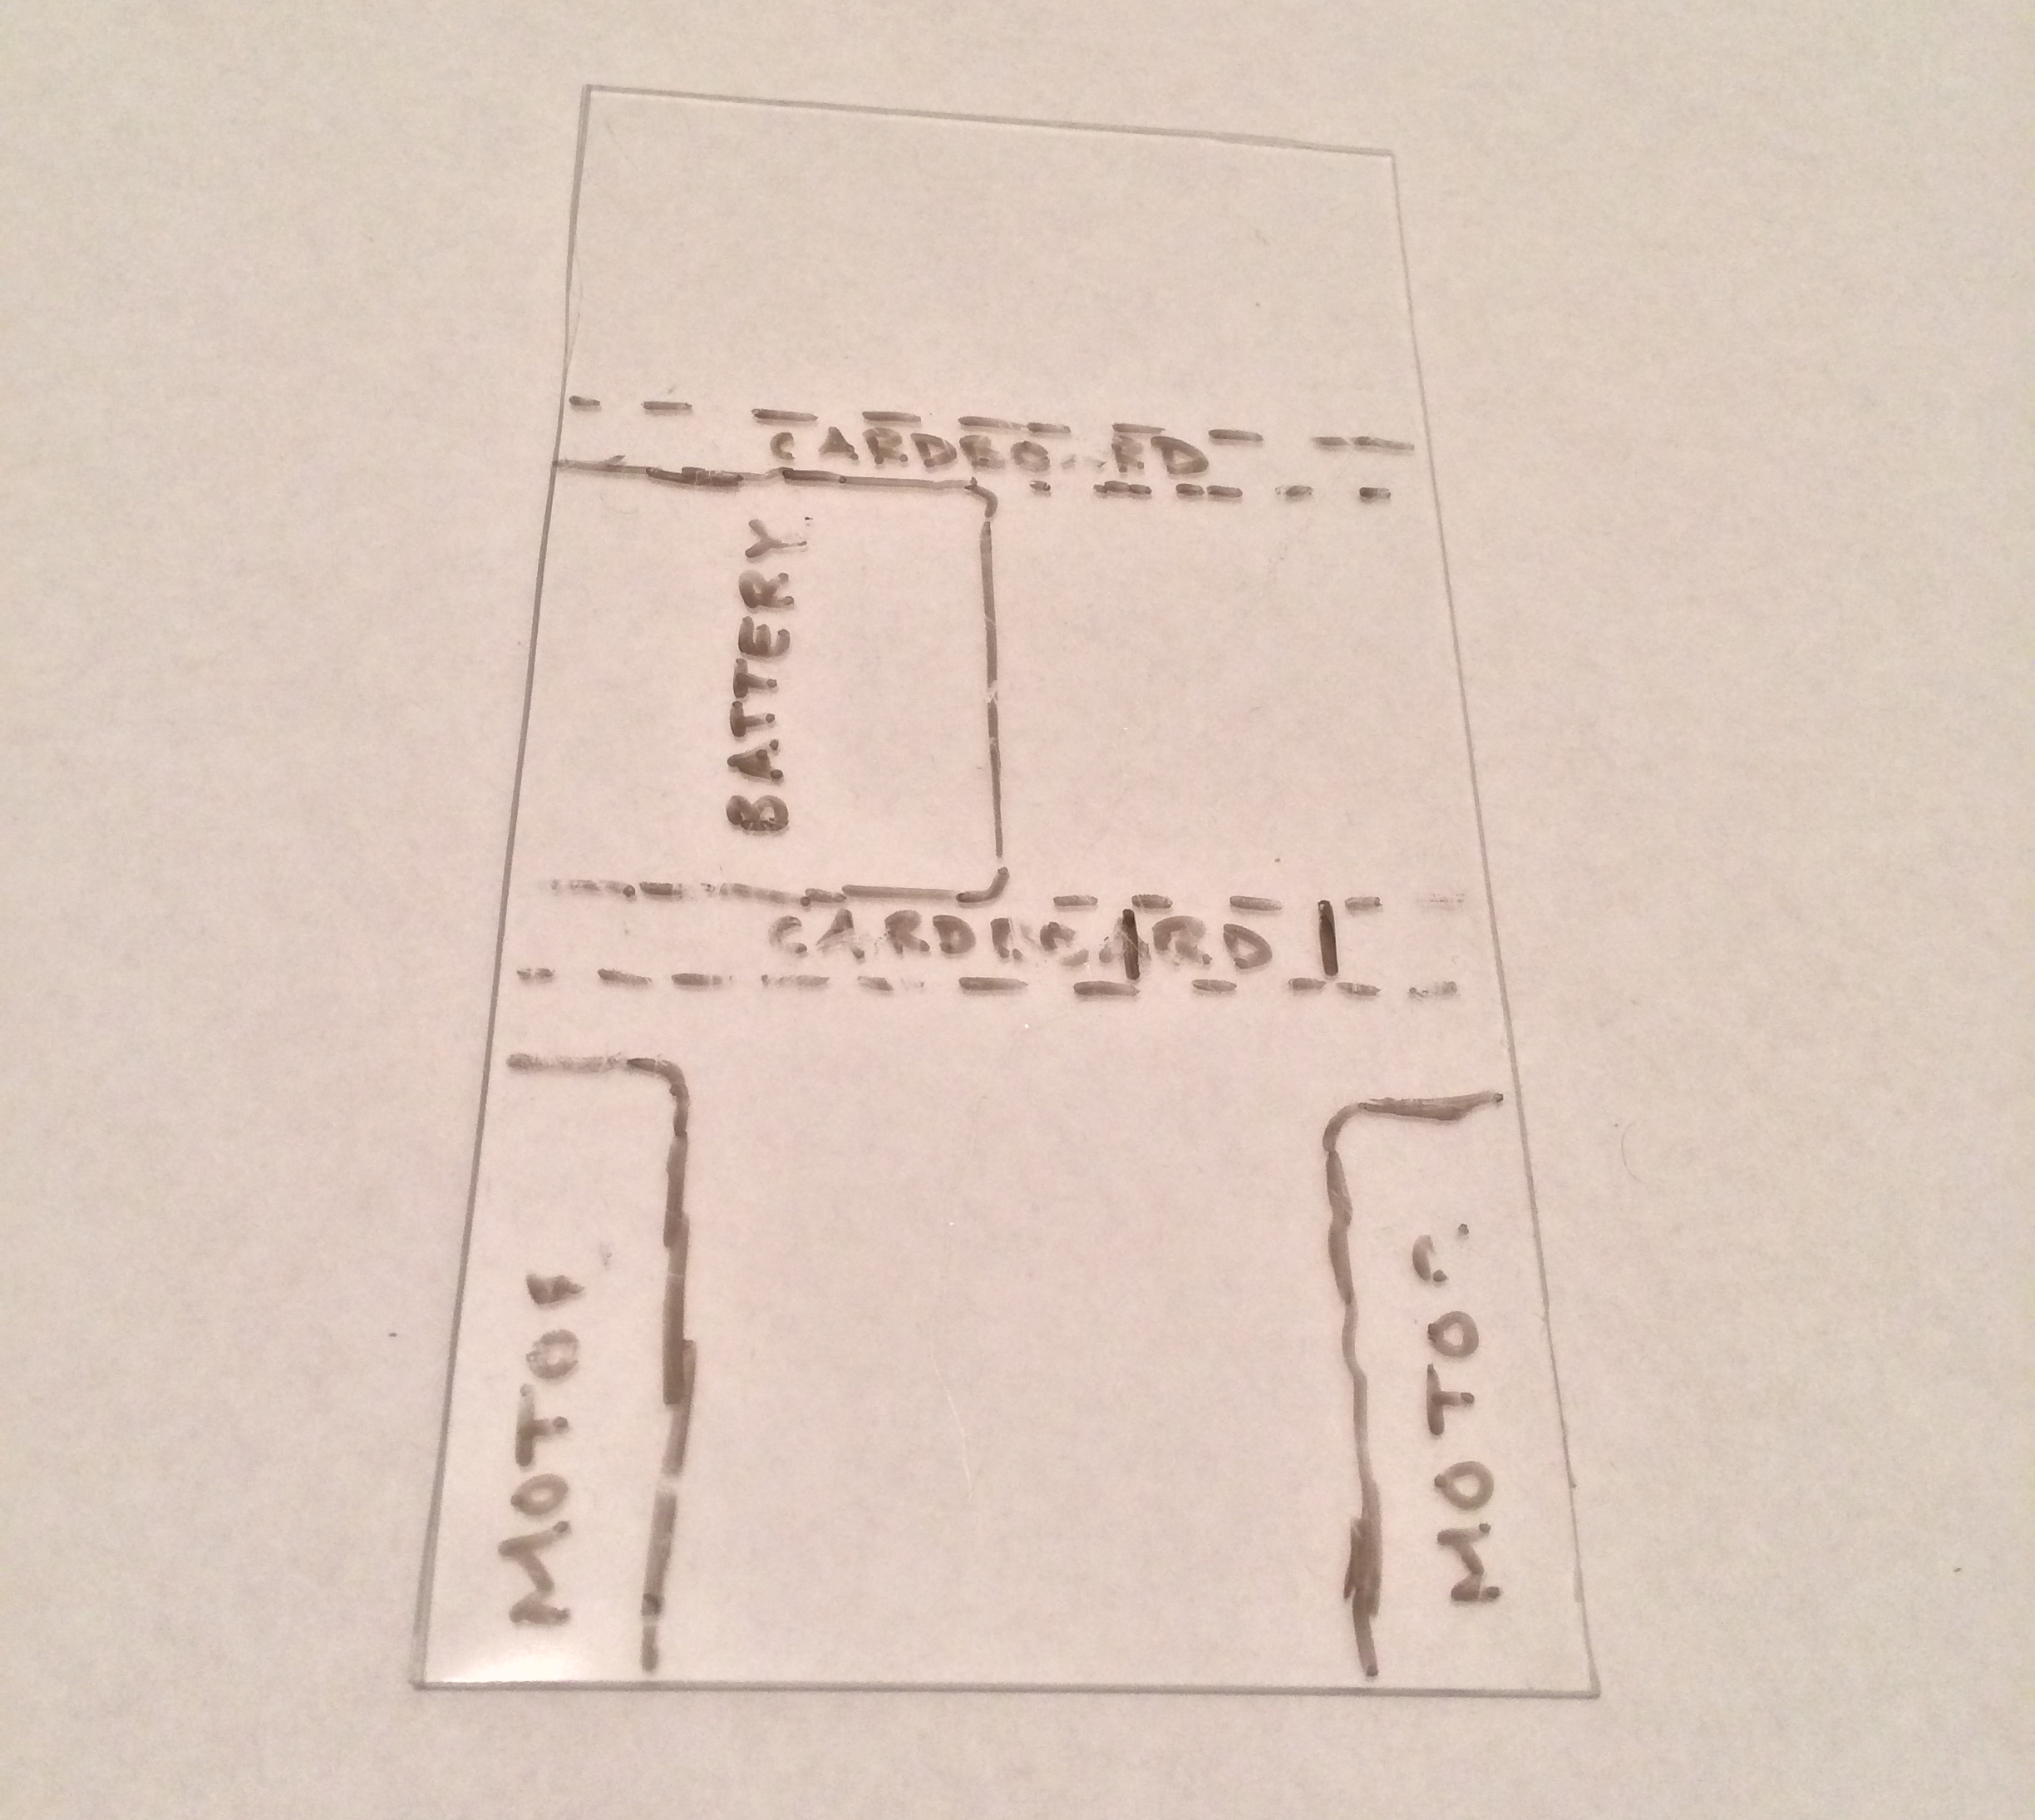 CARDBOARD
BATTERY
CARDBOARD
MOTOR
MOTOR